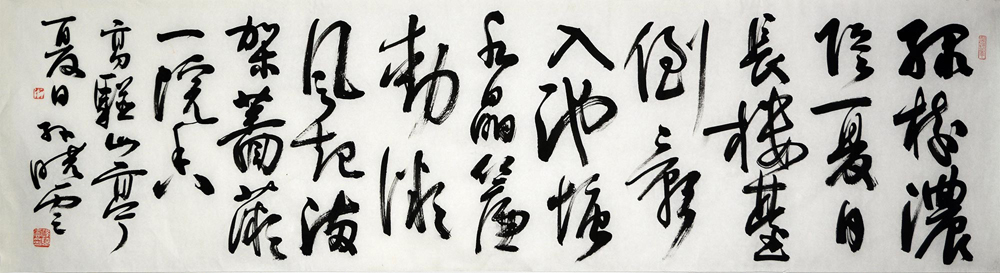 綠樹濃
陰夏日
長樓臺
倒影
入池塘
水晶簾
動微
風起滿
架薔薇
一院香
高駢山亭
夏日 孫曉雲